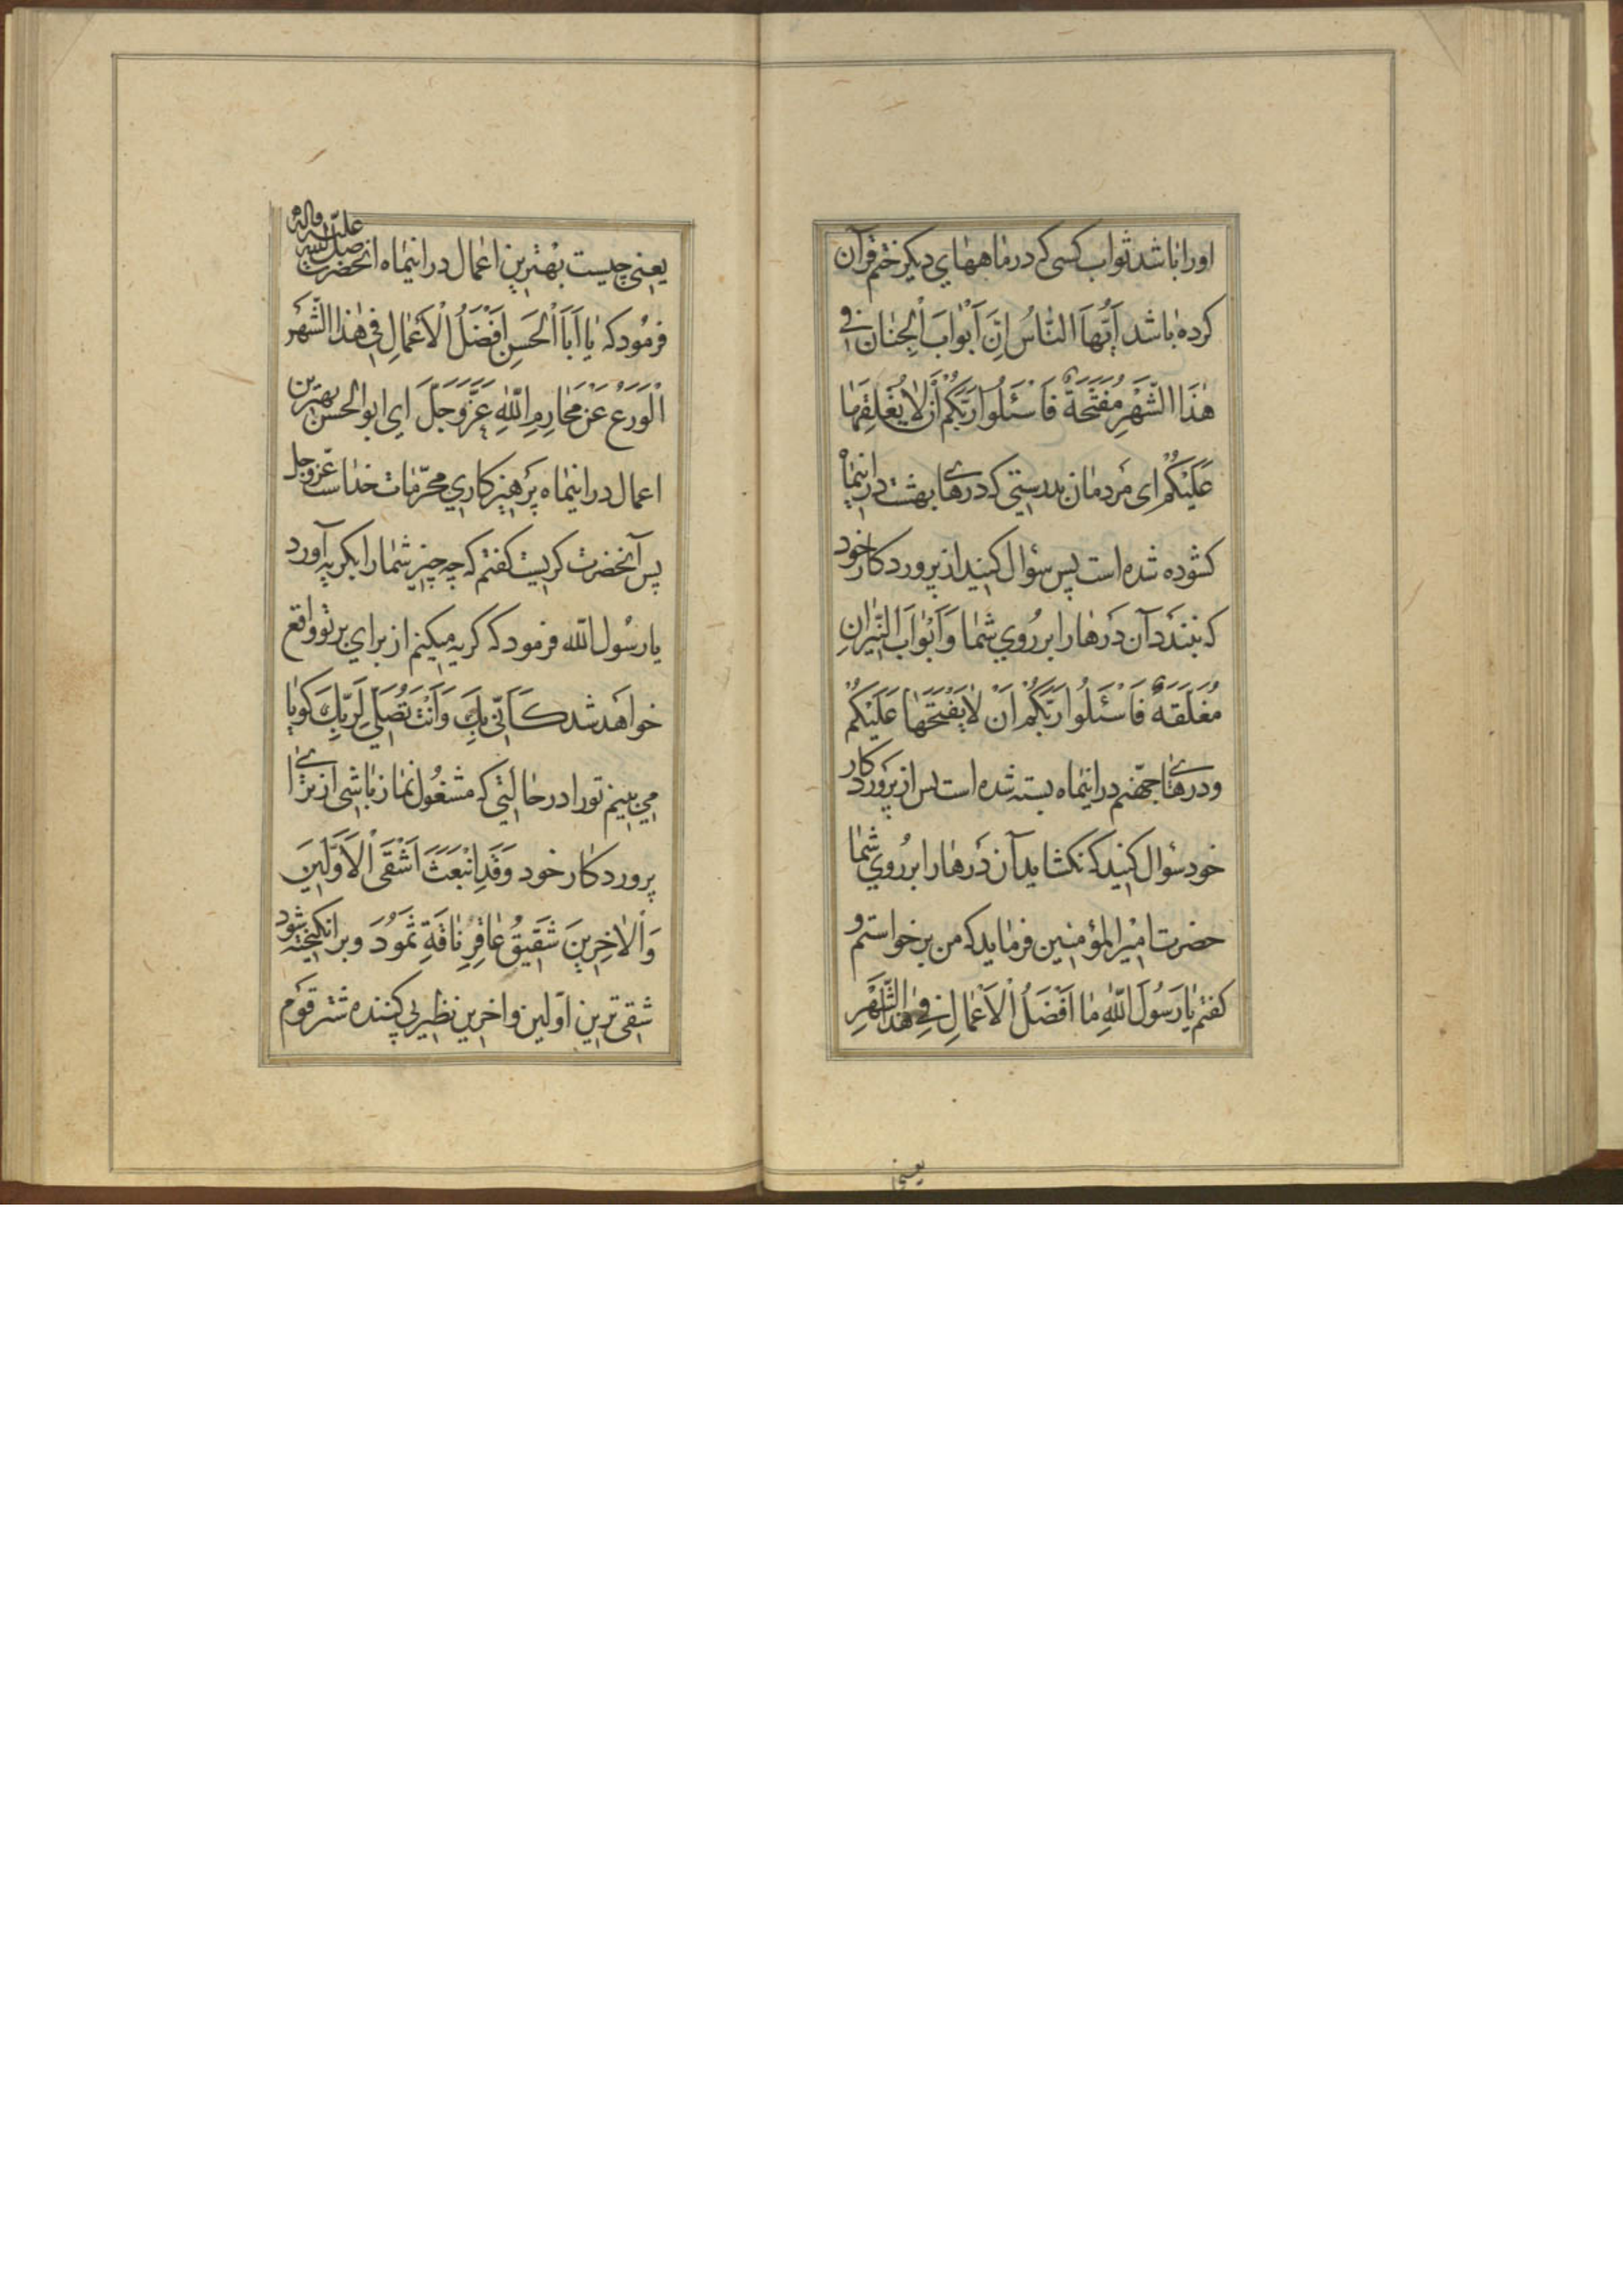 اورا باشد ثواب کسی که در ماههای دیگر ختم قرآن
کرده باشد اَیُّهَا النّاسُ اِنَّ اَبْوابَ الْجِنانِ فی
هٰذَا الشَّهْرِ مُفَتَّحَةٌ فَاسْئَلُوا رَبَّکُمْ اَنْ لا یُغَلِقَها
عَلَیْکُمْ ای مردمان بدرستی که درهای بهشت در اینماه
کشوده شده است پس سؤال کنید از پروردکار خود
که نبندد آن درها را بر روی شما وَ اَبْوابَ النّیرانِ
مُغَلَقَةٌ فَاسْئَلُوا رَبَّکُمْ اَنْ لا یَفْتَحَها عَلَیْکُمْ
و درهای جهنّم در اینماه بسته شده است پس از پروردکار
خود سؤال کنید که نکشاید آن درها را بر روی شما
حضرت امیر المؤمنین فرماید که من برخواستم و
کفتم یا رَسُولَ اللّهِ ما اَفْضَلُ الْاَعْمالِ فی هٰذَا الشَّهْرِ
یعنی
یعنی چیست بهترین اعمال در اینماه انحضرت صلی الله علیه واله
فرمود که یا اَبَا الْحَسَنِ اَفْضَلُ الْاَعْمالِ فی هٰذَا الشَّهْرِ
اَلْوَرَعُ عَنْ مَحارِمِ اللّهِ عَزَّ وَ جَلَّ ای ابو الحسن بهترین
اعمال در اینماه پرهیزکاری محرّمات خداست عز وجل
پس آنحضرت کریست کفتم که چه چیز شما را بکریه آورد
یا رسول الله فرمود که کریه میکنم از برای بر تو واقع
خواهد شد کَاَنّی بِکَ وَ اَنْتَ تُصَلّی لِرَبِّکَ کویا
می بینم تو را در حالتی که مشغول نماز باشی از برای
پروردکار خود وَ قَدِ انْبَعَثَ اَشْقَی الْاَوَّلینَ
وَ الْاٰخِرینَ شَقیقُ عاقِرِ ناقَةِ ثَمُودَ و برانکیخته شود
شقی ترین اوّلین و اخرین نظیر پی کننده شتر قوم